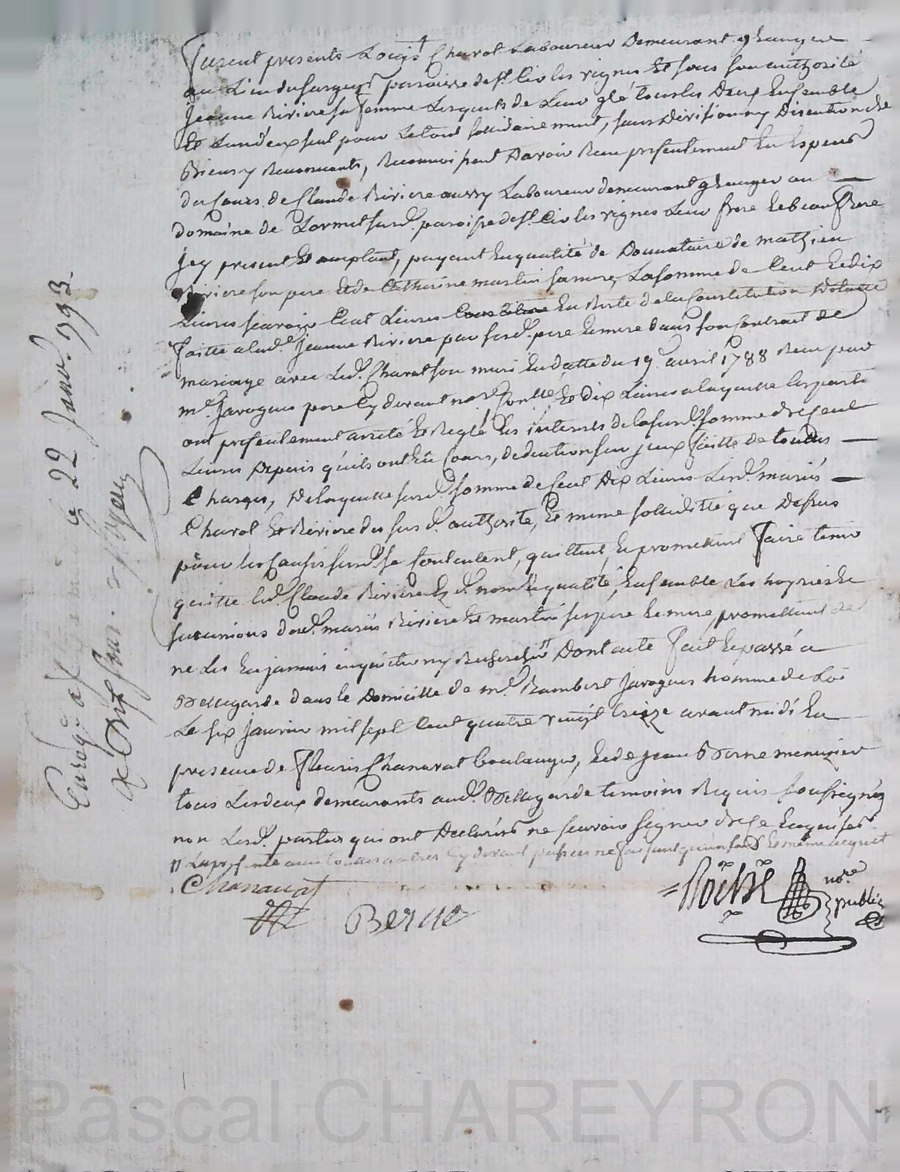 Furent présents Louis Charat Laboureur Demeurant granger
au Lieu du paroisse de st Cir les vignes Et sous son authorité
jeanne Riviere sa femme Lesquels de Leur gré tous les Deux Ensemble
Et Lun deux seul pour Le tout solidairement, sans Division ny Discution de
Biens Reconnoissent Davoir Reçu présentement En Especes
du Cours, de Claude Riviere aussy Laboureur demeurant granger au
domaine de paroisse de st Cir les vignes Leur frere Et beau frere
jcy present Et acceptant, payant En qualité de Donnataire de mathieu
Riviere son pere Et de Catherine martin sa mere, La somme de Cent Et dix
Livres savoir Cent Livres En Reste de la Constitution Dotalle
faitte a lad.e Jeanne Riviere par sesd. pere Et mere dans son Contrat de
mariage avec Led. Charat son mari En datte du 19 avril 1788 Reçu par
m.e Javogues pere Cy devant no.re Et dix Livres a laquelle Les parties
ont présentement arreté Et Reglé Les interets de lasusd. somme de Cent
Livres Depuis qu'ils ont Eu Cours, deduction faitte de touttes
Charges, De laquelle susd. somme de Cent Dix Livres Lesd. mariés
Charat Et Riviere de susd. authorité, Et meme soliditté que Dessus
pour les Causes susd. se Contentent, quittent Et promettent faire tenir
quitte led. Claude Riviere Esd. nom Et qualité, Ensemble Les hoyries Et
successions desd. mariés Riviere Et martin ses pere Et mere, promettent de
ne Les En jamais inquietter ny Rechercher Dont acte fait Et passé a
Bellegarde dans le Domicille de m.e Rambert Javogues homme de Loi
Le six Janvier mil sept Cent quatre vingt treize avant midi En
presence de fleuris Chanavat boulanger, Et de jean Berne meunier
tous Les deux demeurants aud. Bellegarde temoins Requis soussignés
non Lesd. parties qui ont Declarées ne savoir signer de Ce Enquises
Chanavat
Berne
no.re
public
Enreg.é a le 22 Janv. 1793.
Pascal CHAREYRON